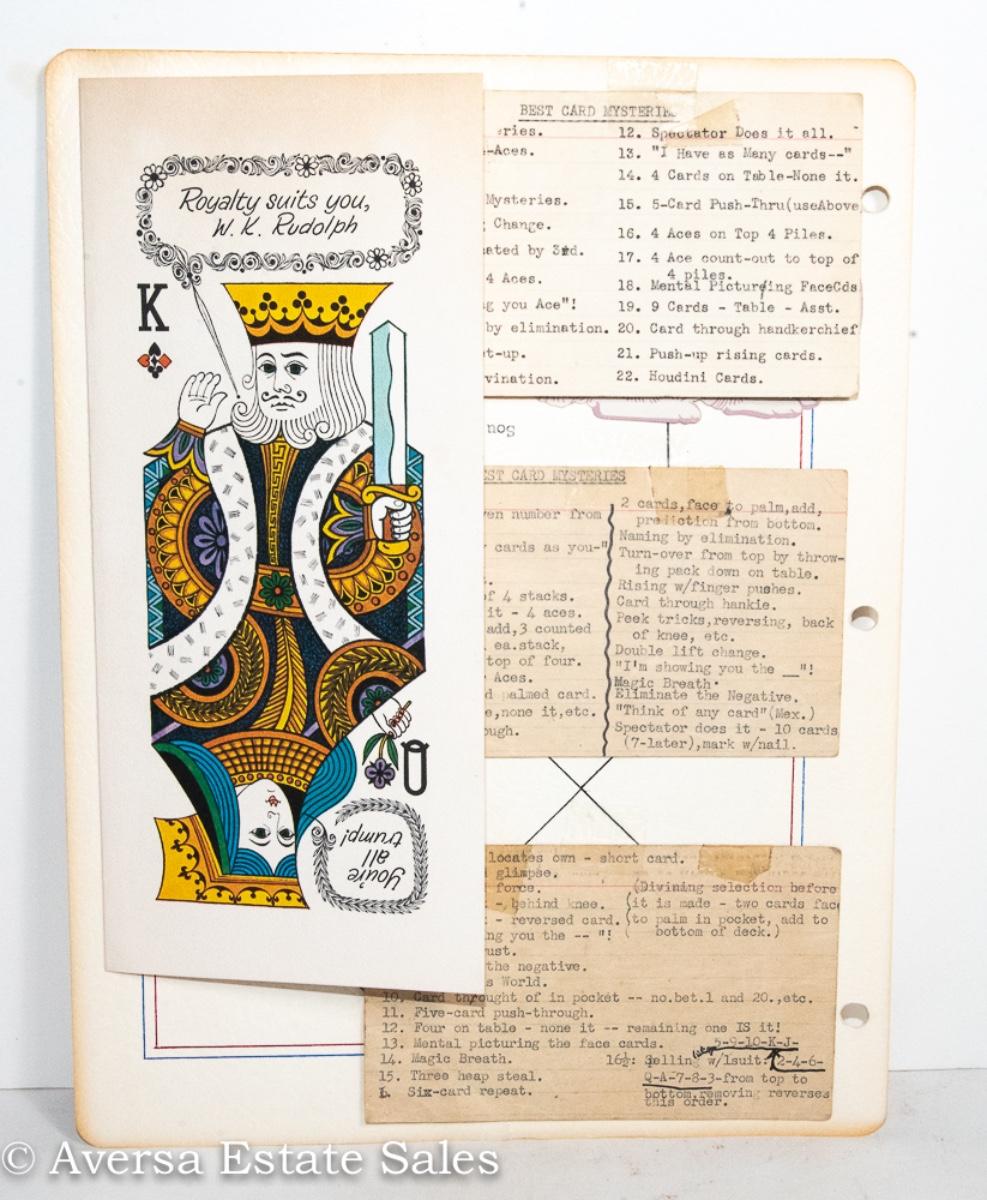 Royalty suits you,
W. K. Rudolph
K
Q
You're
all
trump!
BEST CARD MYSTERIE
eries.
-Aces.
Mysteries.
Change.
ated by 3rd.
4 Aces.
g you Ace"!
by elimination.
t-up.
vination.
12. Spectator Does it all.
13. "I Have as Many cards--"
14. 4 Cards on Table-None it.
15. 5-Card Push-Thru(useAbove
16. 4 Aces on Top 4 Piles.
17. 4 Ace count-out to top of
4 piles.
18. Mental Picturing FaceCds
19. 9 Cards - Table - Asst.
20. Card through handkerchief
21. Push-up rising cards.
22. Houdini Cards.
Sou
EST CARD MYSTERIES
en number from
cards as you-"
f 4 stacks.
it - 4 aces.
add,3 counted
ea.stack,
top of four.
Aces.
d palmed card.
e,none it,etc.
ough.
2 cards,face to palm,add,
prediction from bottom.
Naming by elimination.
Turn-over from top by throw-
ing pack down on table.
Rising w/finger pushes.
Card through hankie.
Peek tricks,reversing, back
of knee, etc.
Double lift change.
"I'm showing you the __"!
Magic Breath.
Eliminate the Negative.
"Think of any card"(Mex.)
Spectator does it - 10 cards
(7-later),mark w/nail.
locates own - short card.
glimpse.
force.
- behind knee.
- reversed card.
ng you the -- "!
ust.
the negative.
s World.
(Divining selection before
it is made - two cards face
to palm in pocket, add to
bottom of deck.)
10. Card throught of in pocket -- no.bet.1 and 20.,etc.
11. Five-card push-through.
12. Four on table - none it -- remaining one IS it!
13. Mental picturing the face cards.
14. Magic Breath.
15. Three heap steal.
6. Six-card repeat.
5-9-10-K-J-
16½: Selling w/1suit: 2-4-6-
Q-A-7-8-3-from top to
bottom,removing reverses
this order.
© Aversa Estate Sales